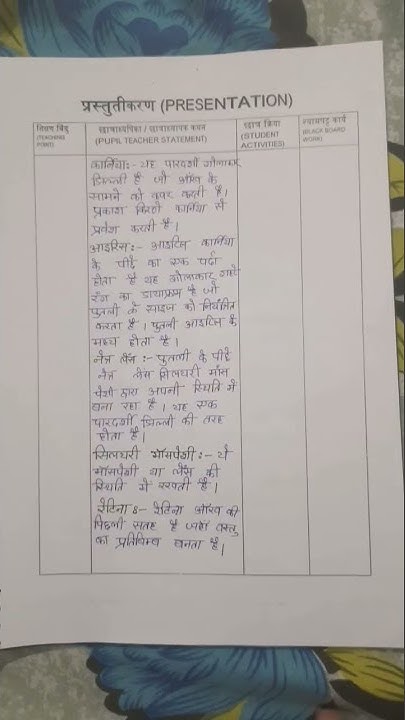 प्रस्तुतीकरण (PRESENTATION)
शिक्षण बिंदु (TEACHING POINT)
छात्राध्यापिका / छात्राध्यापक कथन (PUPIL TEACHER STATEMENT)
छात्र क्रिया (STUDENT ACTIVITIES)
श्यामपट्ट कार्य (BLACK BOARD WORK)
कार्निया:- यह पारदर्शी गोलाकार
झिल्ली है जो आँख के
सामने को कवर करती है।
प्रकाश किरणें कार्निया से
प्रवेश करती है।
आइरिस:- आइरिस कार्निया
के पीछे का एक पर्दा
होता है यह गोलाकार गहरे
रंग का डायाफ्राम है जो
पुतली के साइज को नियंत्रित
करता है। पुतली आइरिस के
मध्य होता है।
नेत्र लेंस :- पुतली के पीछे
नेत्र लेंस सिलयरी मांस
पेशी द्वारा अपनी स्थिति में
बना रहा है। यह एक
पारदर्शी झिल्ली की तरह
होता है।
सिलयरी माँसपेशी:- ये
माँसपेशी या लेंस की
स्थिति में रखती है।
रेटिना:- रेटिना आँख की
पिछली सतह है जहाँ वस्तु
का प्रतिबिम्ब बनता है।